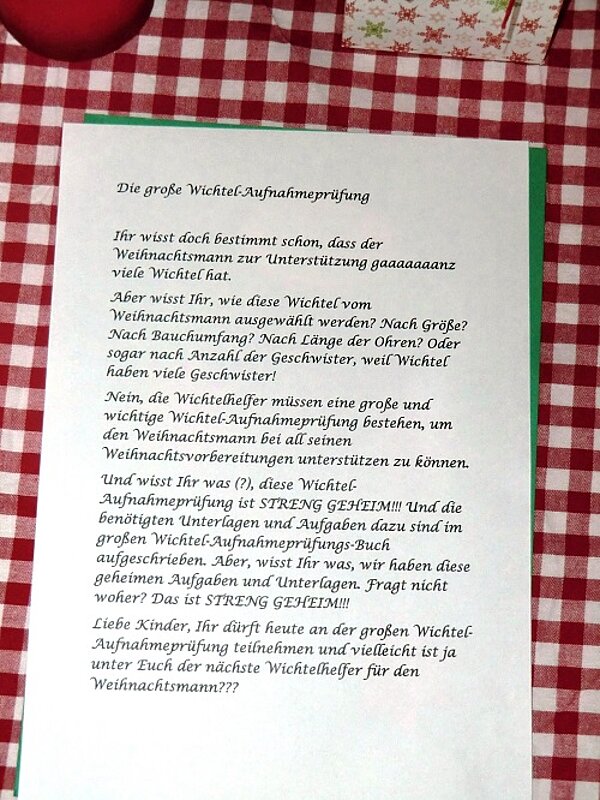 Die große Wichtel-Aufnahmeprüfung
Ihr wisst doch bestimmt schon, dass der
Weihnachtsmann zur Unterstützung gaaaaaaanz
viele Wichtel hat.
Aber wisst Ihr, wie diese Wichtel vom
Weihnachtsmann ausgewählt werden? Nach Größe?
Nach Bauchumfang? Nach Länge der Ohren? Oder
sogar nach Anzahl der Geschwister, weil Wichtel
haben viele Geschwister!
Nein, die Wichtelhelfer müssen eine große und
wichtige Wichtel-Aufnahmeprüfung bestehen, um
den Weihnachtsmann bei all seinen
Weihnachtsvorbereitungen unterstützen zu können.
Und wisst Ihr was (?), diese Wichtel-
Aufnahmeprüfung ist STRENG GEHEIM!!! Und die
benötigten Unterlagen und Aufgaben dazu sind im
großen Wichtel-Aufnahmeprüfungs-Buch
aufgeschrieben. Aber, wisst Ihr was, wir haben diese
geheimen Aufgaben und Unterlagen. Fragt nicht
woher? Das ist STRENG GEHEIM!!!
Liebe Kinder, Ihr dürft heute an der großen Wichtel-
Aufnahmeprüfung teilnehmen und vielleicht ist ja
unter Euch der nächste Wichtelhelfer für den
Weihnachtsmann???